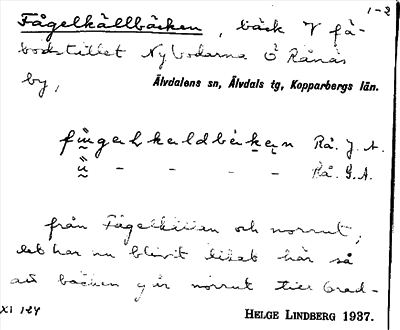 1-2
Fågelkällbäcken, bäck V fä-
bodstället Nybodarna Ö Rånäs
by,
Älvdalens sn, Älvdals tg, Kopparbergs län.
Rå. J. A.
" - - - - Rå. G. A.
från Fågelkällan och norrut;
det har nu blivit likat här så
att bäcken går norrut till Grad-
XI 124
HELGE LINDBERG 1937.